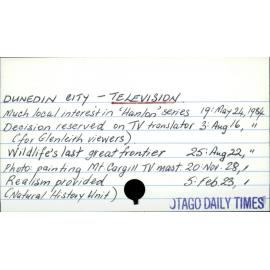 DUNEDIN CITY - TELEVISION.
Much local interest in 'Hanlon' series 19: May 24, 1984
Decision reserved on TV translator 3: Aug 16, "
(for Glenleith viewers)
Wildlife's last great frontier 25: Aug 22, "
Photo: painting Mt Cargill TV mast. 20: Nov. 28, "
Realism provided 5: Feb 23, "
(Natural History Unit)
OTAGO DAILY TIMES